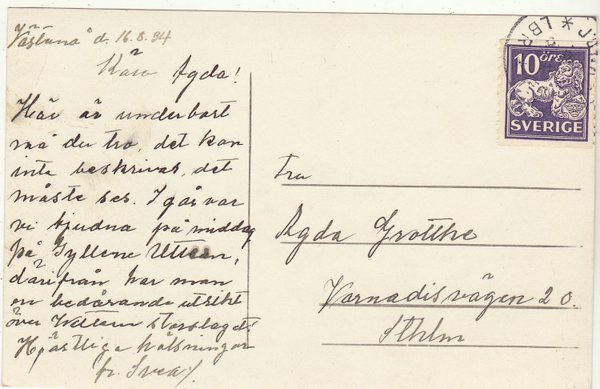 Västanå d. 16.8.34
Kära Agda!
Här är underbart
må du tro, det kan
inte beskrivas, det
måste ses. I går var
vi bjudna på middag
på Gyllene Uttern,
därifrån har man
en bedårande utsikt
över Vettern storslaget
Hjärtliga hälsningar
fr. Svea
10 ÖRE
SVERIGE
LBR
Fru
Agda Grotthe
Vanadisvägen 20.
Sthlm